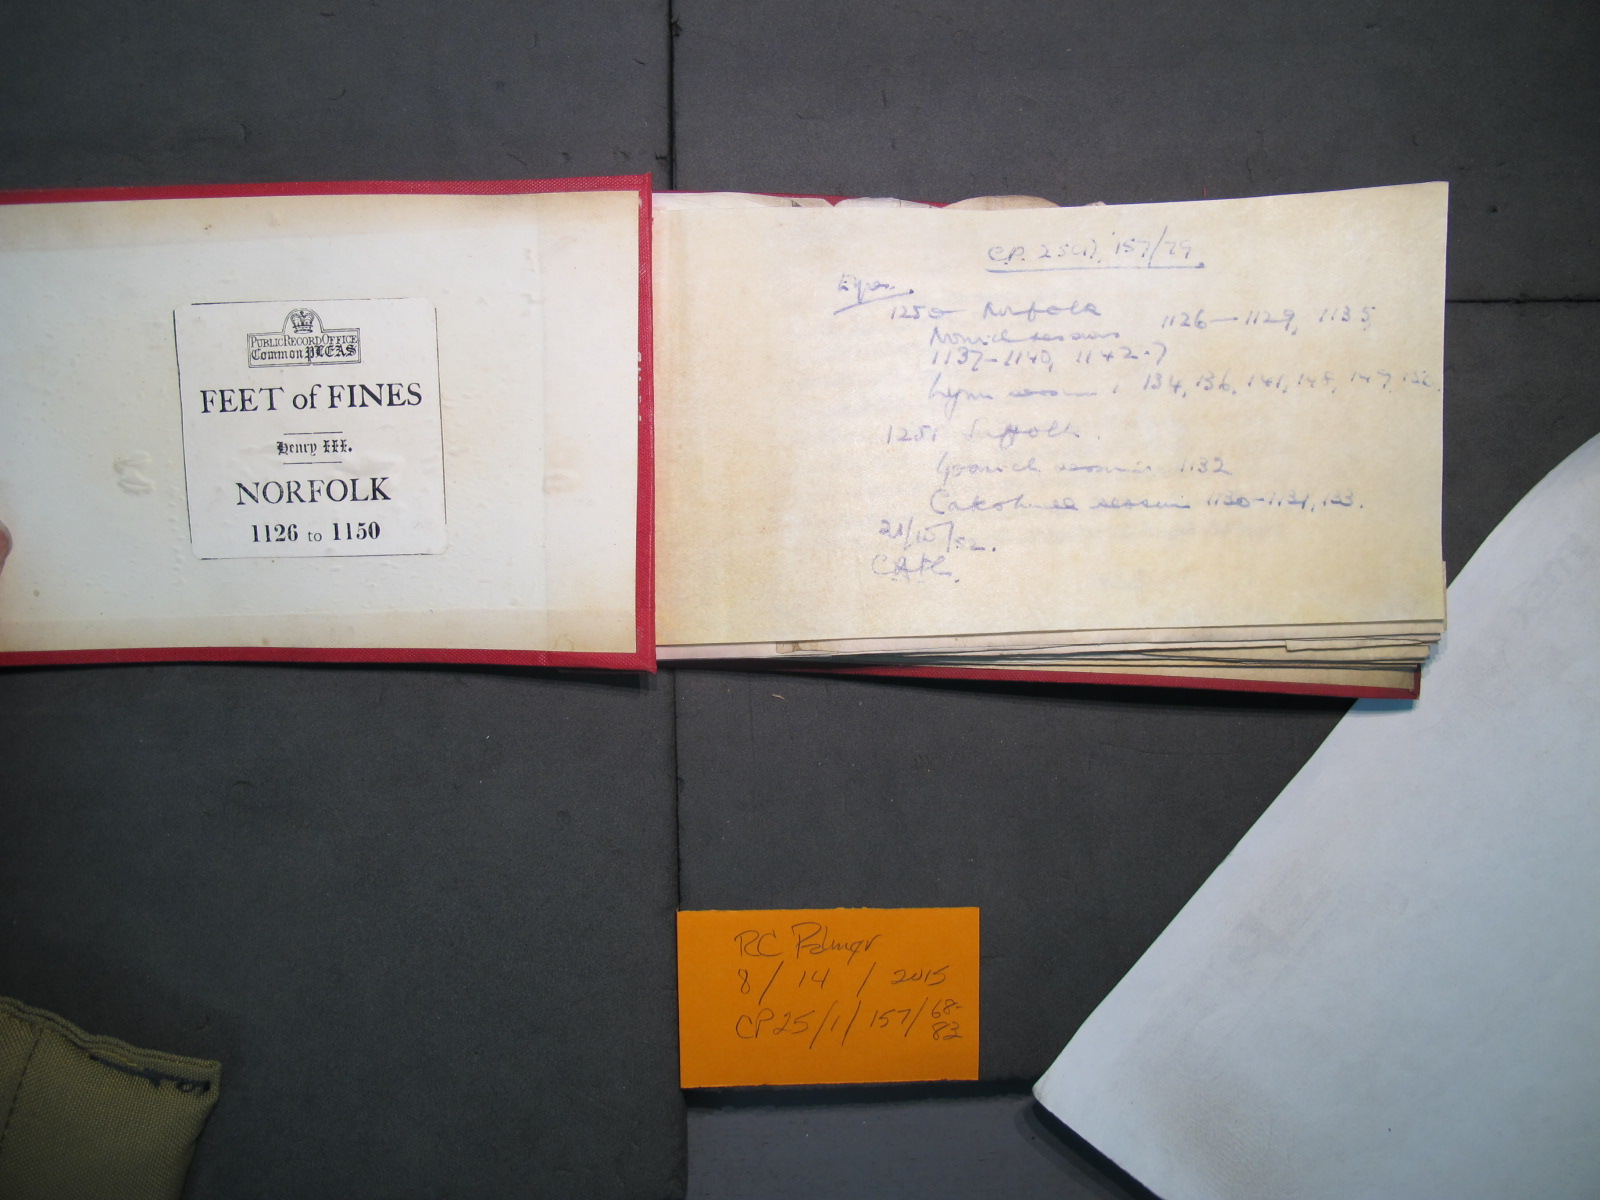 PUBLIC RECORD OFFICE
Common PLEAS
FEET of FINES
Henry III.
NORFOLK
1126 to 1150
C.P. 25(1), 157/79
Eyres.
1250 Norfolk
Norwich session 1126–1129, 1135,
1137–1140, 1142-7
Lynn session 1134, 1136, 141, 148, 149, 150.
1251 Suffolk.
Ipswich session 1132
Cattishall session 1130–1131, 133.
21/10/52.
RC Palmer
8/14/2015
CP25/1/157/68-
82